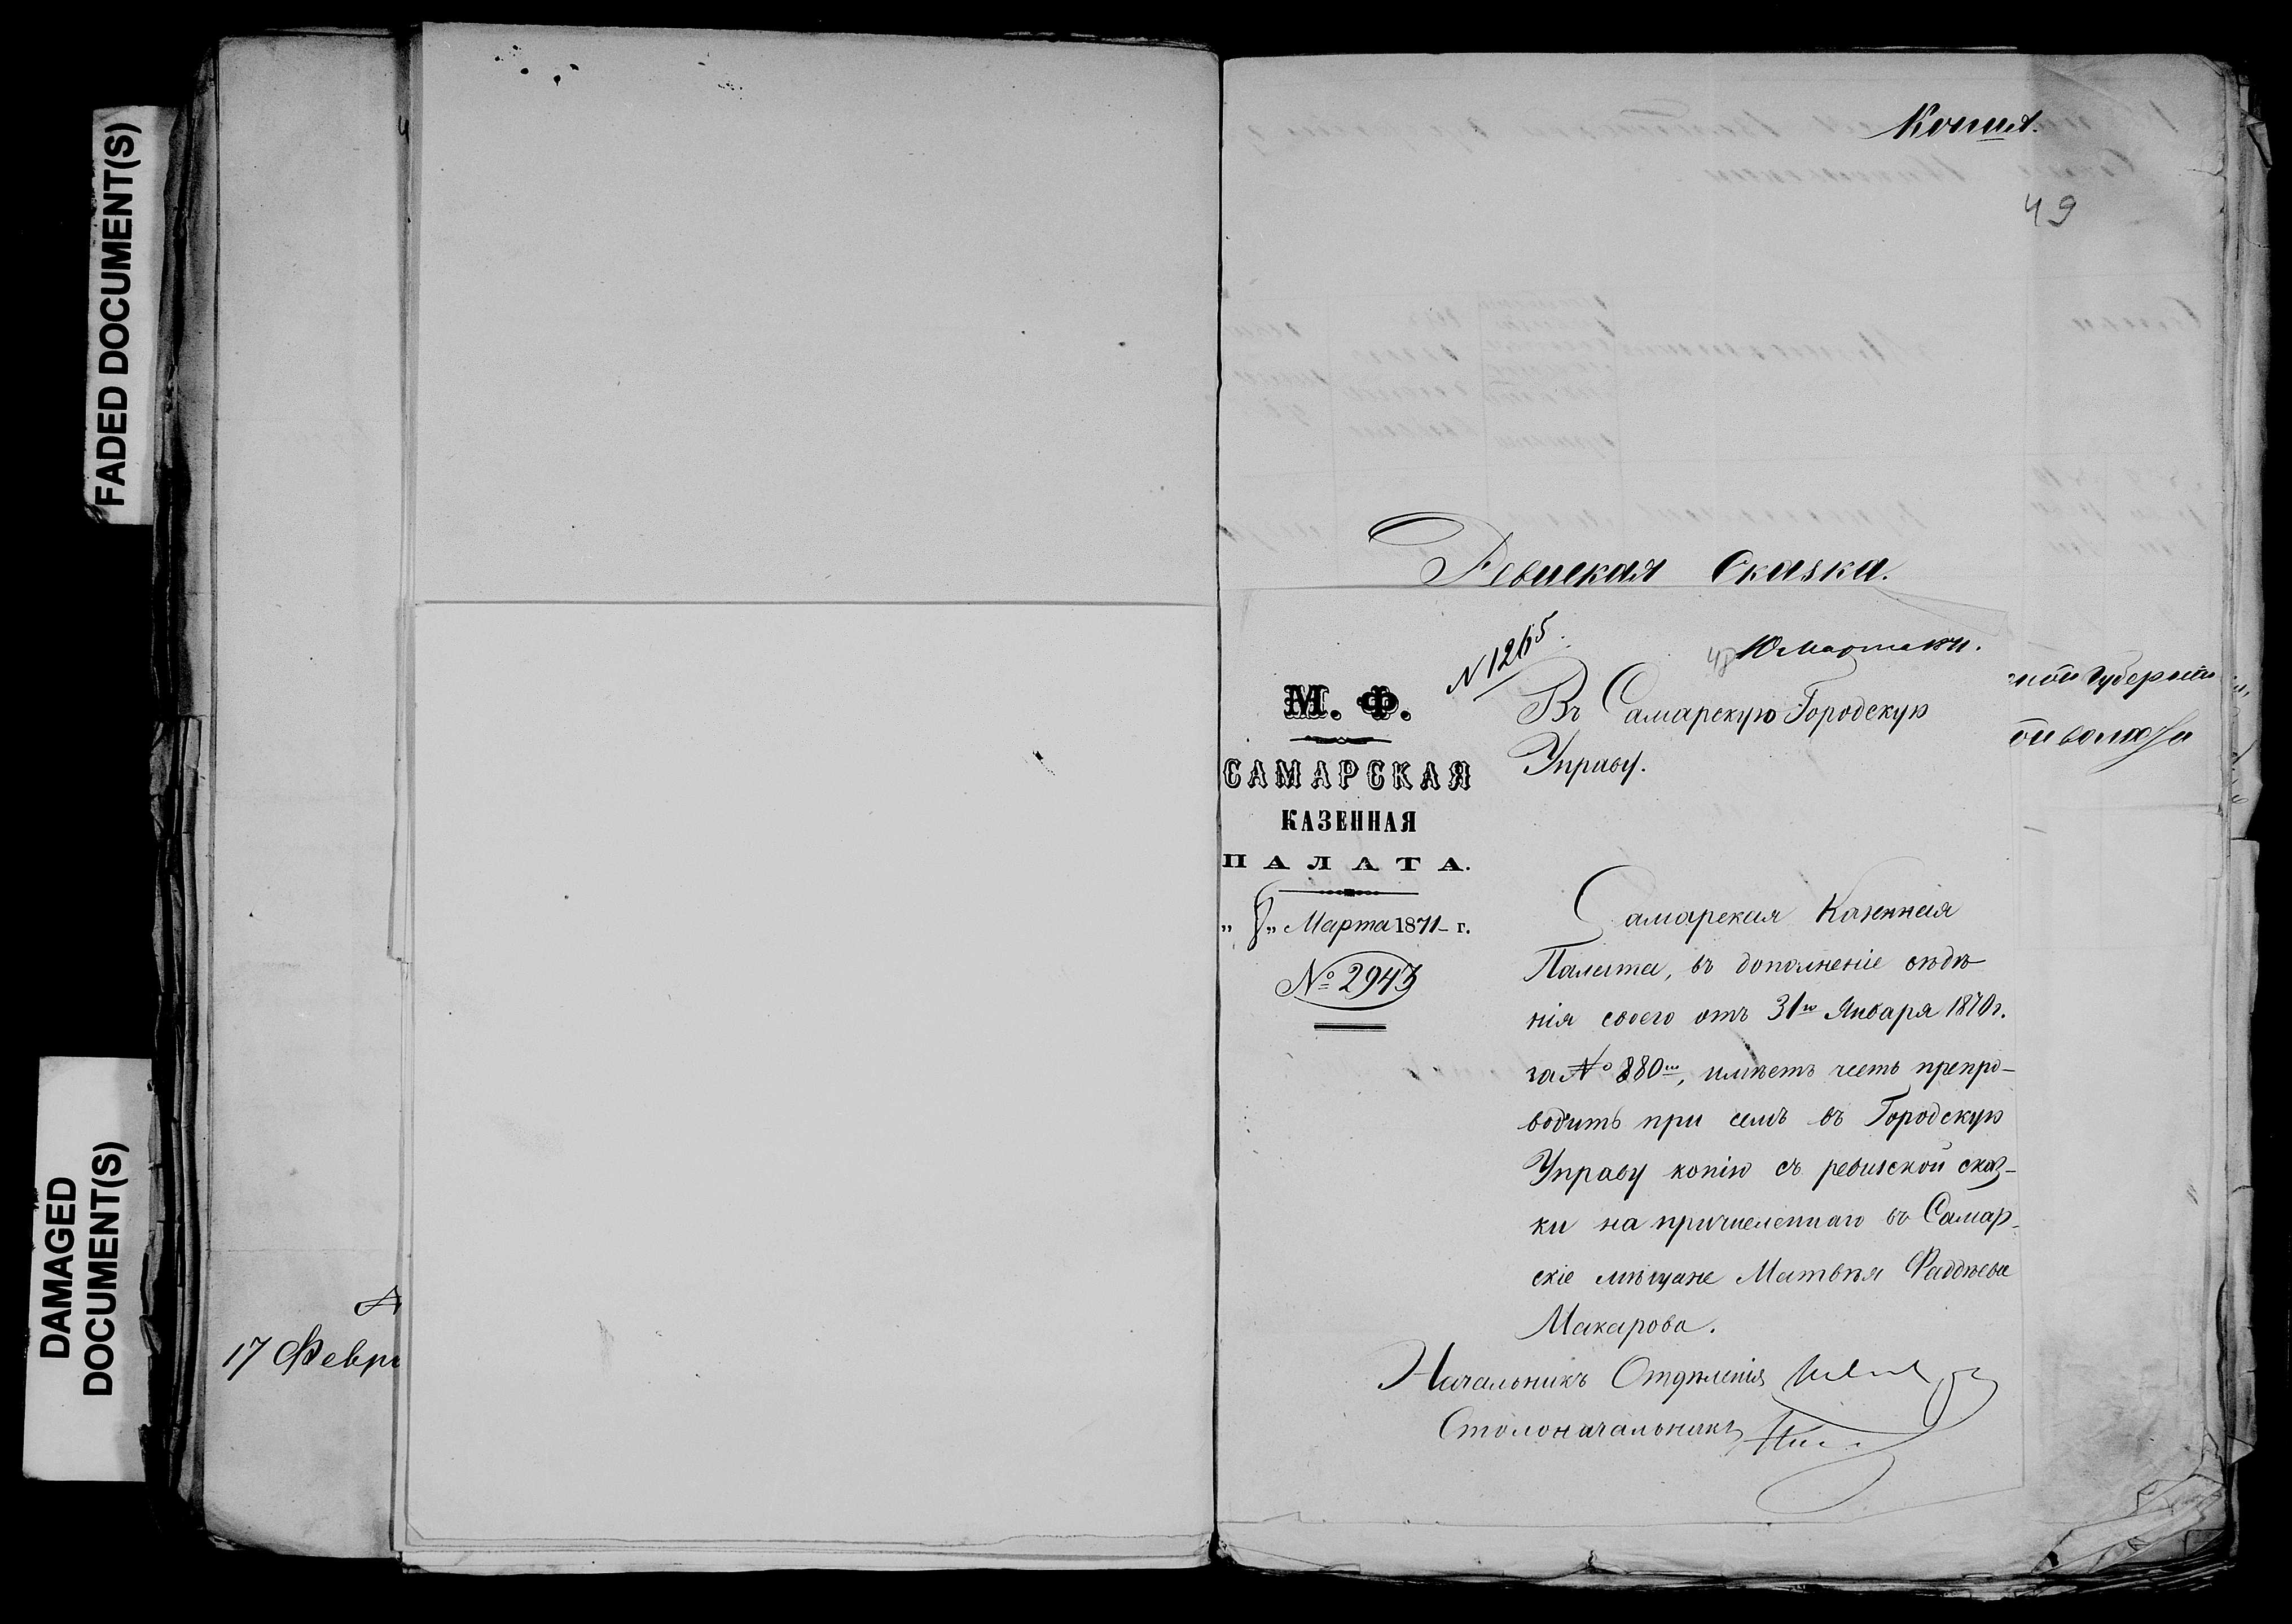 FADED DOCUMENT(S)
DAMAGED
DOCUMENT(S)
17 Февр
Копия.
49
Ревиская Сказка.
N 1265
10 Марта
ной Губерніи
ой волости
М. Ф.
САМАРСКАЯ
КАЗЕННАЯ
ПАЛАТА.
„ 8 „ Марта 1871 г.
№ 2943
Въ Самарскую Городскую
Управу.
Самарская Казенная
Палата, въ дополненіе свѣдѣ
нія своего отъ 31го Января 1870 г.
за № 880м, имѣетъ честь препро-
водить при семъ въ Городскую
Управу копію съ ревизской сказ-
ки на причисленнаго въ Самар-
скіе мѣщане Матвѣя Фаддѣева
Макарова.
Начальникъ Отдѣленія
Столоначальникъ